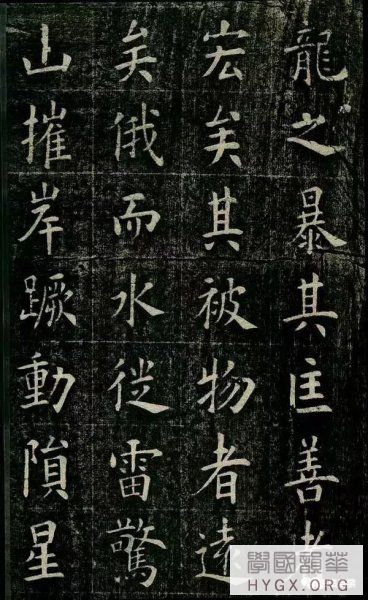 龍之暴其匡善者
宏矣其被物者遠
矣俄而水從雷驚
山摧岸蹶動隕星
華韻國學
HYGX.ORG